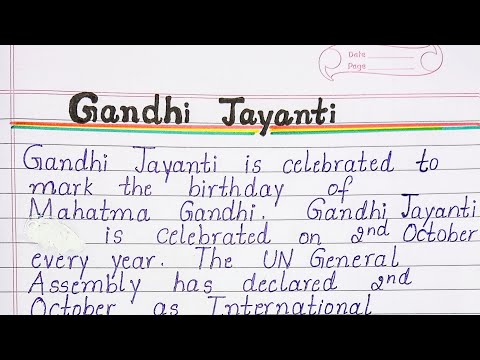 Date
Page
Gandhi Jayanti
Gandhi Jayanti is celebrated to
mark the birthday of
Mahatma Gandhi. Gandhi Jayanti
is celebrated on 2nd October
every year. The UN General
Assembly has declared 2nd
October as International